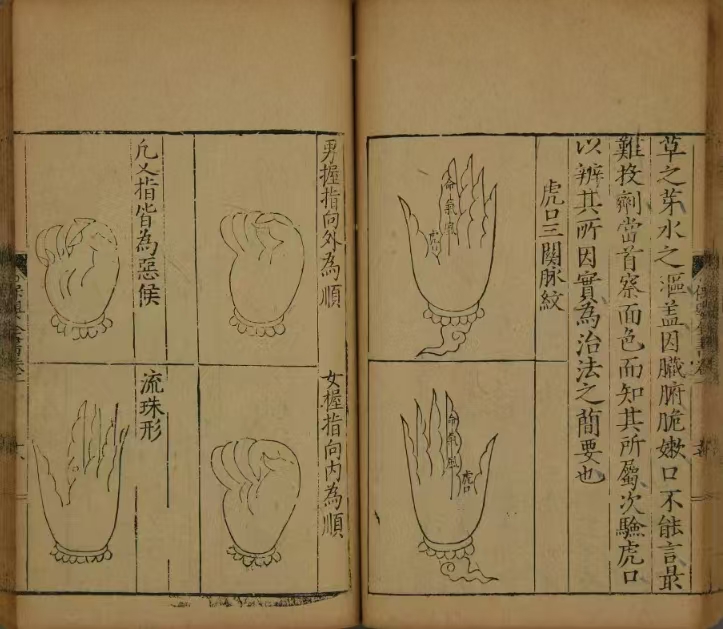 草之芽水之漚盖因臟腑脆嫩口不能言最
難投劑當首察面色而知其所屬次驗虎口
以辨其所因實為治法之簡要也
虎口三關脉紋
命氣風
虎口
命氣風
虎口
男握指向外為順
女握指向内為順
凡乂指皆為惡候
流珠形